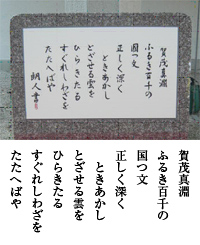 賀茂真淵
ふるき百千の
国つ文
正しく深く
ときあかし
とざせる雲を
ひらきたる
すぐれしわざを
たたへばや
朗人書
賀茂真淵
ふるき百千の
国つ文
正しく深く
ときあかし
とざせる雲を
ひらきたる
すぐれしわざを
たたへばや